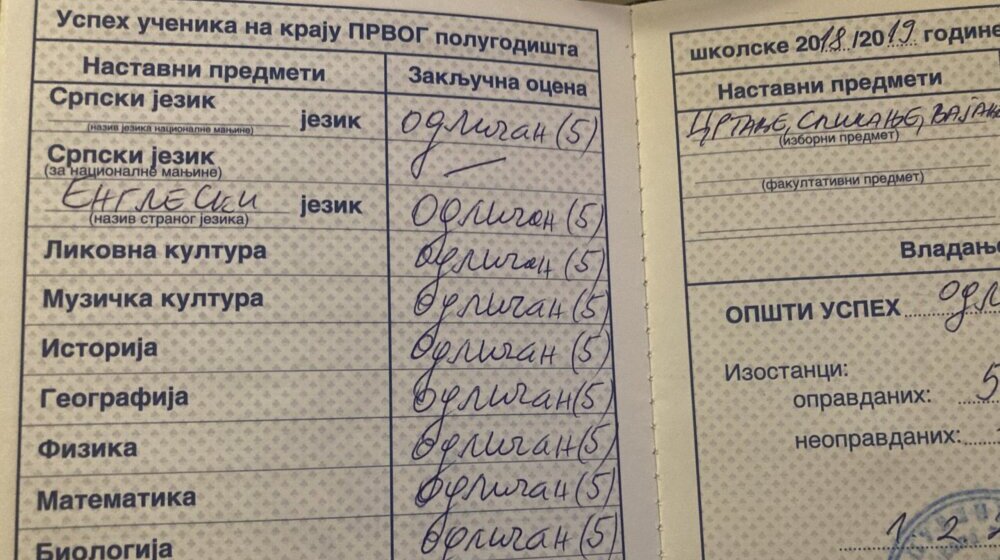 Успех ученика на крају ПРВОГ полугодишта
Наставни предмети Закључна оцена
Српски језик
језик одличан (5)
(назив језика националне мањине)
Српски језик
(за националне мањине)
ЕНГЛЕСКИ језик одличан (5)
(назив страног језика)
Ликовна култура одличан (5)
Музичка култура одличан (5)
Историја одличан (5)
Географија одличан (5)
Физика одличан (5)
Математика одличан (5)
Биологија одличан (5)
школске 2018/2019 године
Наставни предмети
ЦРТАЊЕ, СЛИКАЊЕ,
(изборни предмет)
(факултативни предмет)
ОПШТИ УСПЕХ
Изостанци:
оправданих: 5
неоправданих:
1 2